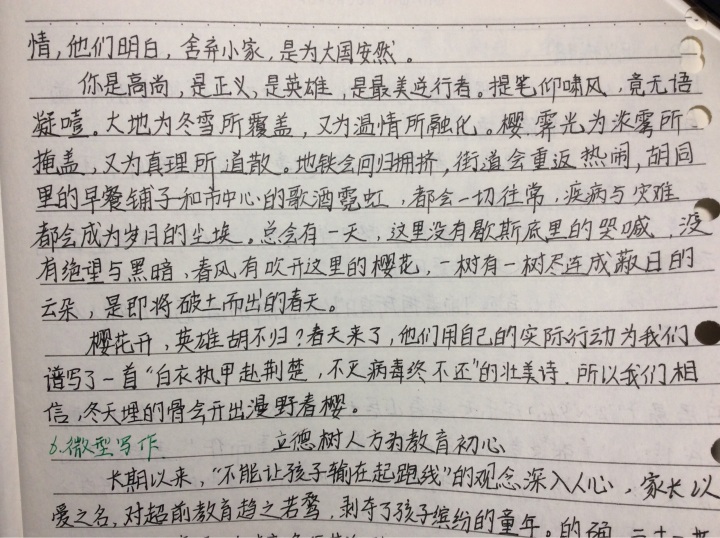 情，他们明白，舍弃小家，是为大国安然。
你是高尚，是正义，是英雄，是最美逆行者。提笔仰啸风，竟无语
凝噎。大地为冬雪所覆盖，又为温情所融化。樱，霁光为浓雾所
掩盖，又为真理所道散。地铁会回归拥挤，街道会重返热闹，胡同
里的早餐铺子和市中心的歌酒霓虹，都会一切往常，疾病与灾难
都会成为岁月的尘埃。总会有一天，这里没有歇斯底里的哭喊，没
有绝望与黑暗，春风有吹开这里的樱花，一树有一树尽连成蔽日的
云朵，是即将破土而出的春天。
樱花开，英雄胡不归？春天来了，他们用自己的实际行动为我们
谱写了一首“白衣执甲赴荆楚，不灭病毒终不还”的壮美诗．所以我们相
信，冬天埋的骨会开出漫野春樱。
6.微型写作 立德树人方为教育初心
长期以来，“不能让孩子输在起跑线”的观念深入人心，家长以
爱之名，对超前教育趋之若鹜，剥夺了孩子缤纷的童年。的确